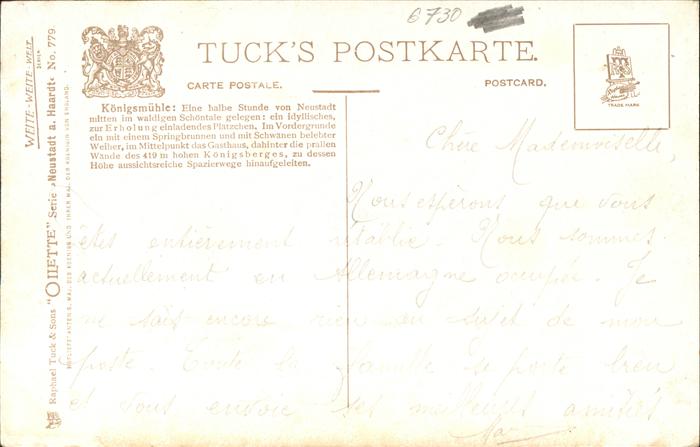 6730
TUCK'S POSTKARTE.
CARTE POSTALE.
POSTCARD.
TRADE MARK
WEITE-WEITE-WELT
SERIEN
Raphael Tuck & Sons "OILETTE" Serie »Neustadt a. Haardt« No. 779.
HOFLIEFERANTEN S. MAJ. DES KOENIGS UND IHRER MAJ. DER KOENIGIN VON ENGLAND.
Königsmühle: Eine halbe Stunde von Neustadt
mitten im waldigen Schöntale gelegen: ein idyllisches,
zur Erholung einladendes Plätzchen. Im Vordergrunde
ein mit einem Springbrunnen und mit Schwänen belebter
Weiher, im Mittelpunkt das Gasthaus, dahinter die prallen
Wände des 419 m hohen Königsberges, zu dessen
Höhe aussichtsreiche Spazierwege hinaufgeleiten.
Chère Mademoiselle,
Nous espérons que vous
êtes entièrement rétablie. Nous sommes
actuellement en Allemagne occupée. Je
ne sais encore rien au sujet de mon
poste. Toute la famille se porte bien
et vous envoie ses meilleures amitiés